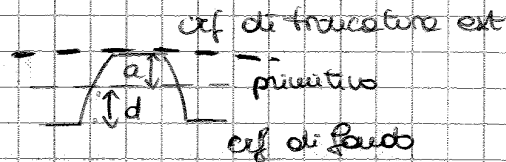 crf di troncatura est
a
primitivo
d
crf di fondo